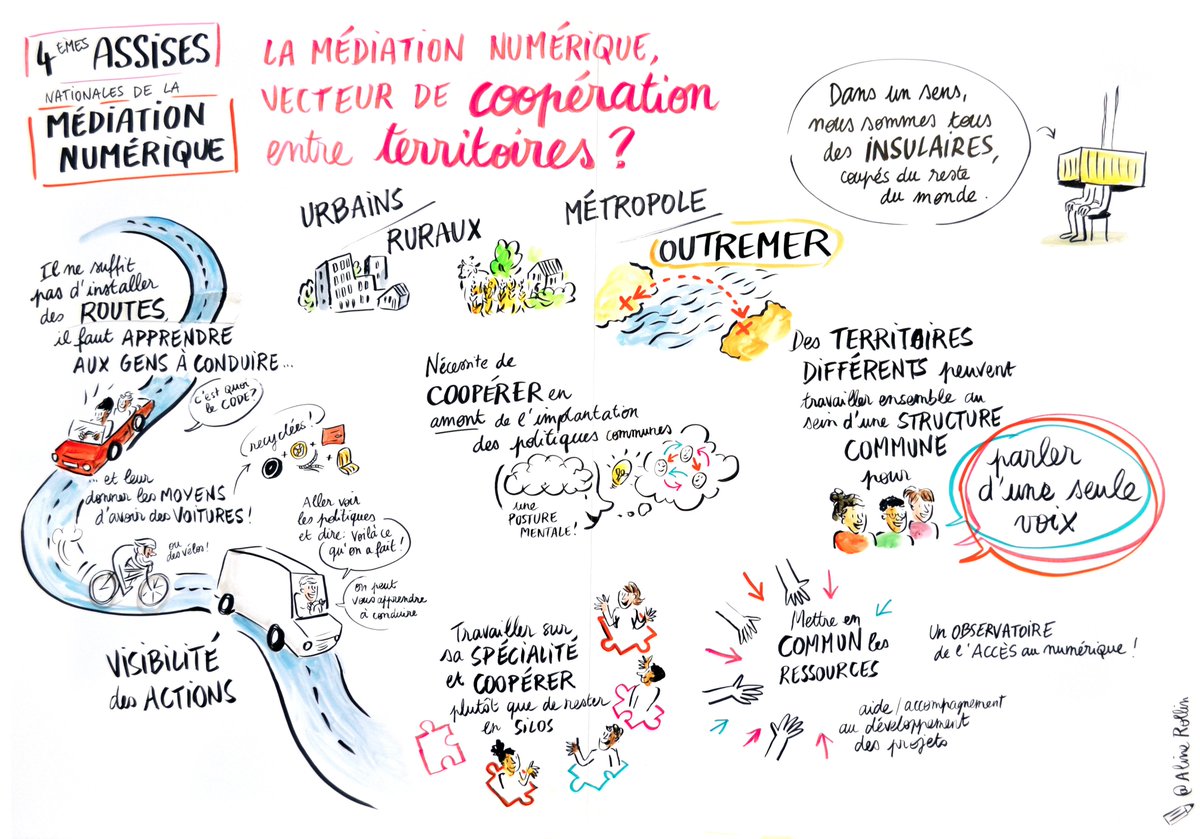 4ÈMES ASSISES
NATIONALES DE LA
MÉDIATION
NUMÉRIQUE
LA MÉDIATION NUMÉRIQUE,
VECTEUR DE coopération
entre territoires ?
Dans un sens,
nous sommes tous
des INSULAIRES,
coupés du reste
du monde.
URBAINS
RURAUX
MÉTROPOLE
OUTREMER
Il ne suffit
pas d'installer
des ROUTES,
il faut APPRENDRE
AUX GENS À CONDUIRE...
c'est quoi
le CODE?
recyclées!
... et leur
donner les MOYENS
d'avoir des VOITURES!
ou
des vélos!
Aller voir
les politiques
et dire: Voilà ce
qu'on a fait!
on peut
vous apprendre
à conduire
VISIBILITÉ
des ACTIONS
Nécessite de
COOPÉRER en
amont de l'implantation
des politiques communes
une
POSTURE
MENTALE!
Des TERRITOIRES
DIFFÉRENTS peuvent
travailler ensemble au
sein d'une STRUCTURE
COMMUNE
pour
parler
d'une seule
voix
Travailler sur
sa SPÉCIALITÉ
et COOPÉRER
plutôt que de rester
en SILOS
Mettre en
COMMUN les
RESSOURCES
Un OBSERVATOIRE
de l'ACCÈS au numérique!
aide/accompagnement
au développement
des projets
@Aline Rollin